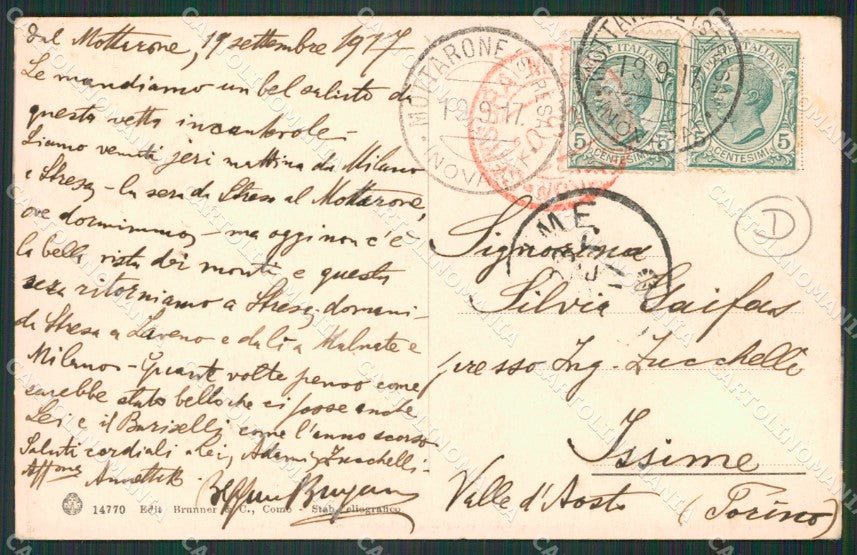 dal Mottarone, 19 settembre 1917
Le mandiamo un bel saluto da
questa vetta incantevole -
Siamo venuti jeri mattina da Milano
a Stresa - la sera da Stresa al Mottarone,
ove dormimmo - ma oggi non c'è
la bella vista dei monti e questa
sera ritorniamo a Stresa - domani
da Stresa a Laveno e da lì a Malnate e
Milano - Quante volte penso come
sarebbe stato bello che ci fosse anche
Lei e il Bariselli, come l'anno scorso
Saluti cordiali a Lei, Zucchelli -
Aff.
14770 Edit Brunner & C., Como - Stab. eliografico
MOTTARONE (STRESA)
19.9.17.
(NOVARA)
POSTE ITALIANE
5 5
CENTESIMI
POSTE ITALIANE
5 5
CENTESIMI
MOTTARONE (STRESA)
19.9.17.
(NOVARA)
D
Signorina
Silvia Gaifas
presso Ing. Zucchelli
Issime
Valle d'Aosta (Torino)
CARTOLINOMANIA